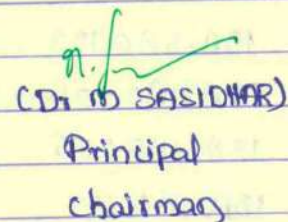 (Dr M SASIDHAR)
Principal
Chairman